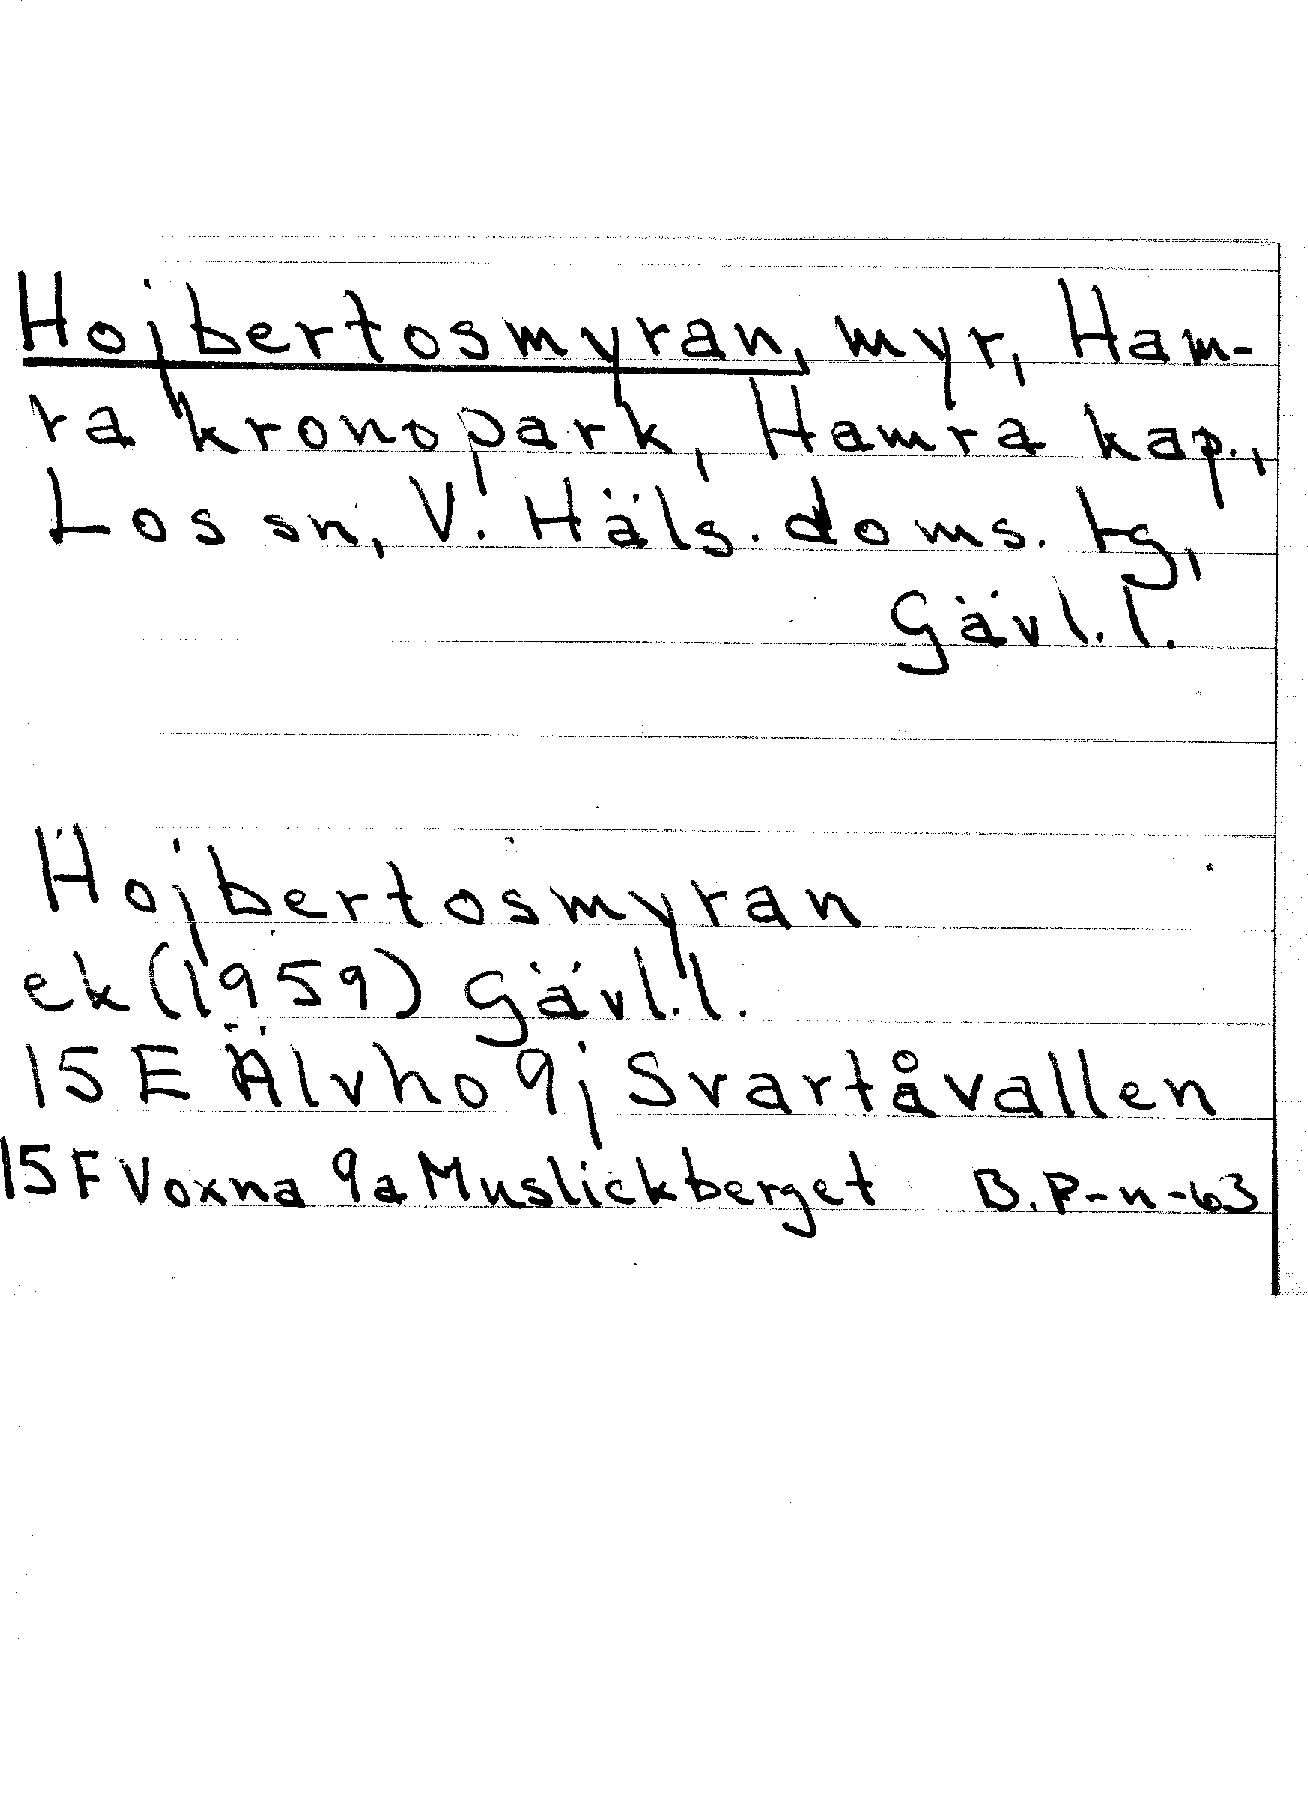 Hojbertosmyran, myr, Ham-
ra kronopark, Hamra kap.,
Los sn, V. Häls. doms. tg,
Gävl. l.
Hojbertosmyran
ek (1959) Gävl. l.
15 E Älvho 9j Svartåvallen
15 F Voxna 9a Muslickberget B. P-n -63